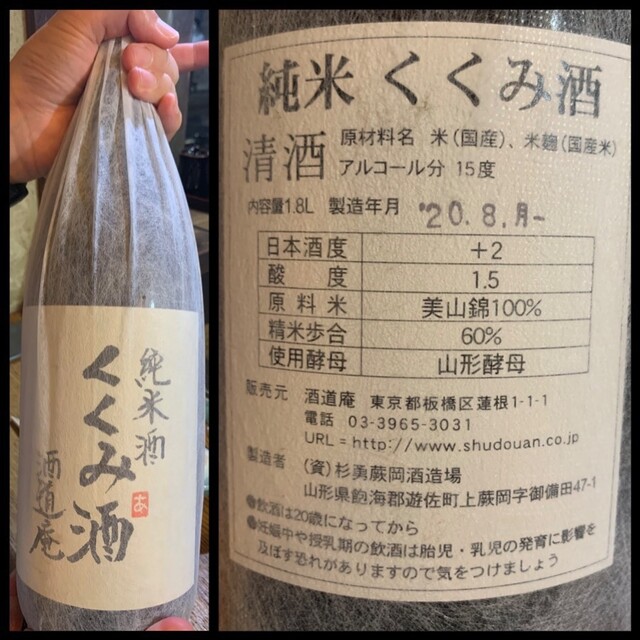 純米酒
くくみ酒
酒道庵
あ
純米 くくみ酒
清酒
原材料名 米(国産)、米麹(国産米)
アルコール分 15度
内容量1.8L 製造年月 '20.8.月
日本酒度 +2
酸度 1.5
原料米 美山錦100%
精米歩合 60%
使用酵母 山形酵母
販売元 酒道庵 東京都板橋区蓮根1-1-1
電話 03-3965-3031
URL=http://www.shudouan.co.jp
製造者 (資)杉勇蕨岡酒造場
山形県飽海郡遊佐町上蕨岡字御備田47-1
●飲酒は20歳になってから
●妊娠中や授乳期の飲酒は胎児・乳児の発育に影響を
及ぼす恐れがありますので気をつけましょう